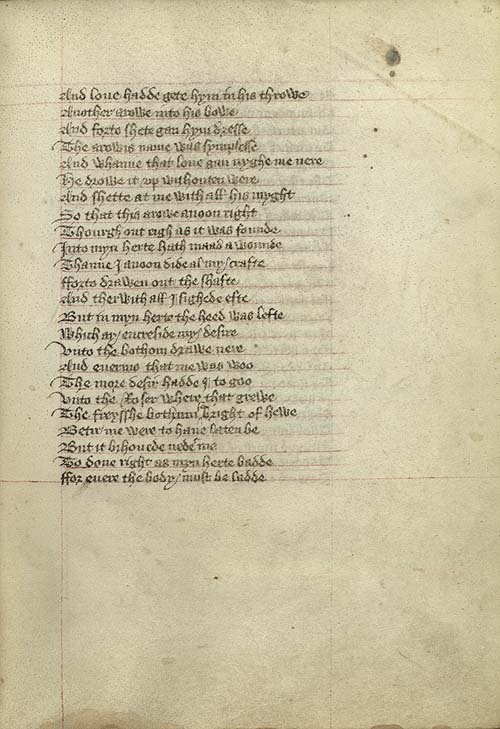 And loue hadde gete hym in his throwe
Another arowe into his bowe
And forto shete gan hym dresse
The arowis name was symplesse
And whanne that loue gan nyghe me nere
He drowe it vp withouten were
And shette at me with all his myght
So that this arowe anoon right
Thourgh out eigh as it was founde
Into myn herte hath maad a wounde
Thanne I anoon dide al my crafte
fforto drawen out the shafte
And ther with all I sighede efte
But in myn herte the heed was lefte
Which ay encreside my desire
Vnto the bothom drawe nere
And euermo that me was woo
The more desir hadde I to goo
Vnto the Roser where that grewe
The freysshe bothum bright of hewe
Betir me were to haue laten be
But it bihouede nede me
To done right as myn herte badde
ffor euere the body must be ladde